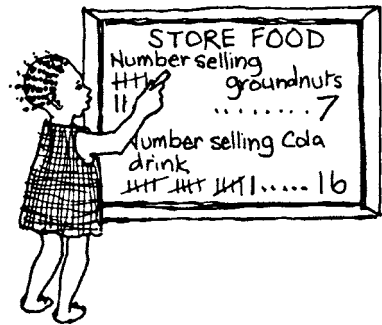 STORE FOOD
Number selling
groundnuts
........7
Number selling Cola
drink
.....16